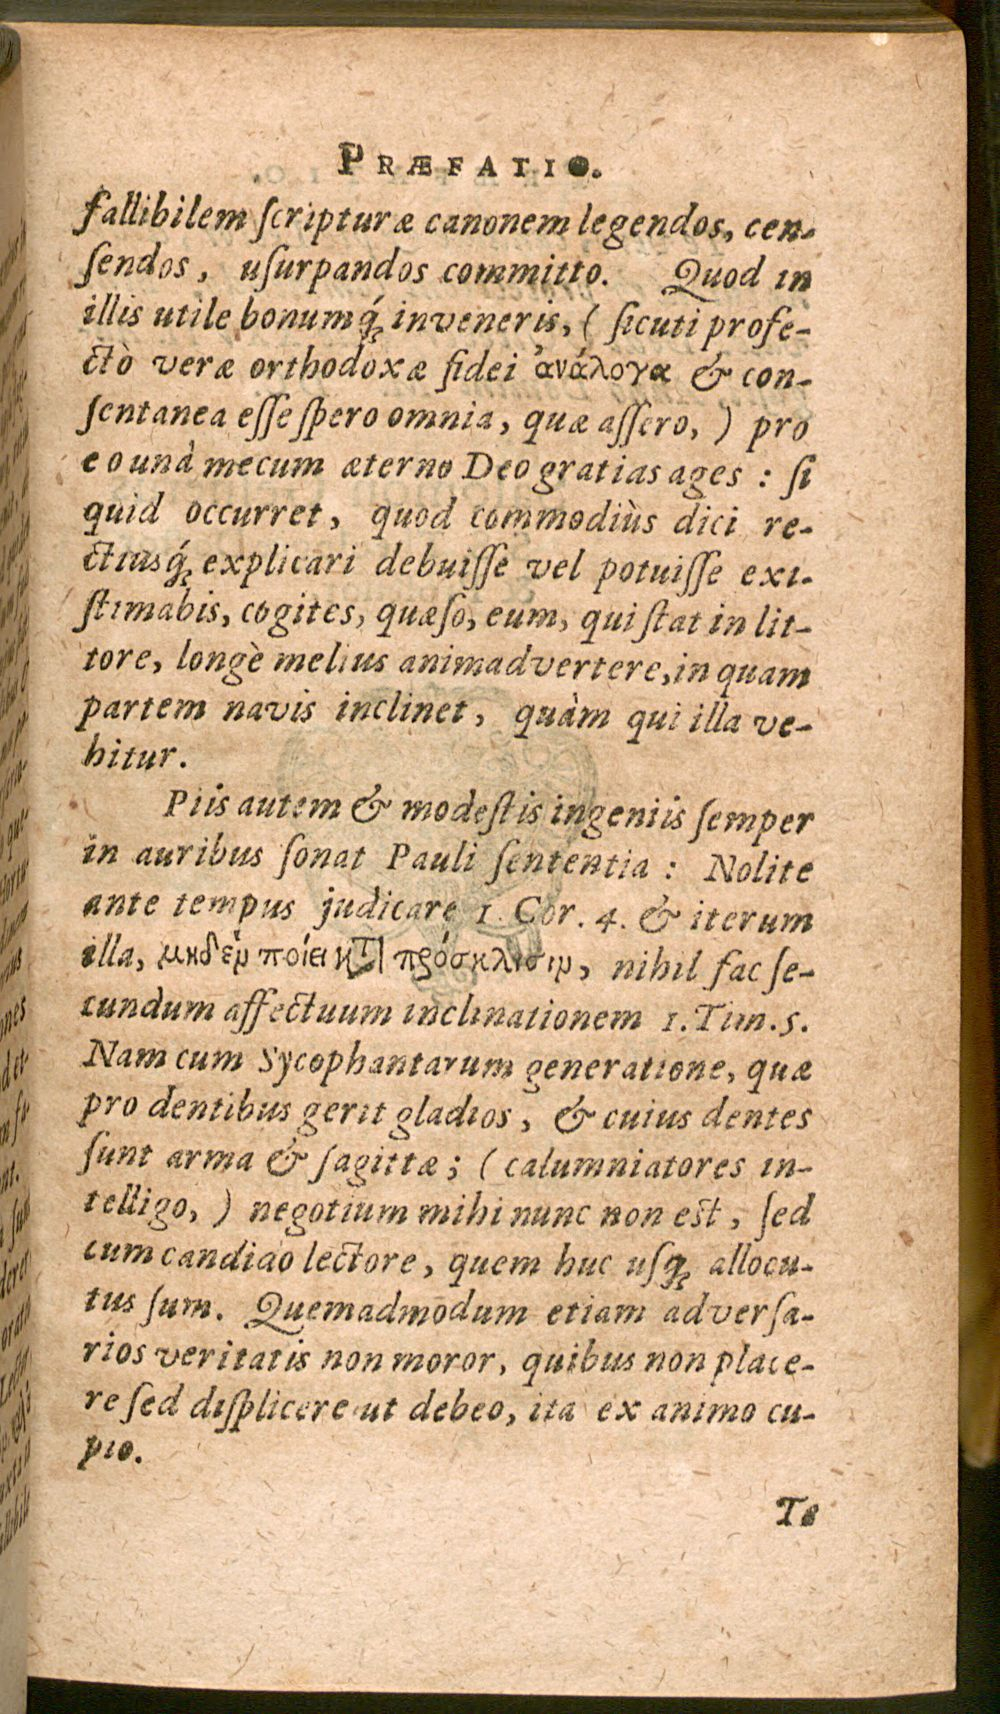 PRÆFATIO.
fallibilem ſcripturæ canonem legendos, cen-
ſendos, uſurpandos committo. Quod in
illis utile bonumq́; inveneris, ( ſicuti profe-
ctò veræ orthodoxæ fidei ἀνάλογα & con-
ſentanea eſſe ſpero omnia, quæ aſſero, ) pro
eo unà mecum æterno Deo gratias ages : ſi
quid occurret, quod commodiùs dici re-
ctiusq́; explicari debuiſſe vel potuiſſe exi-
ſtimabis, cogites, quæſo, eum, qui ſtat in lit-
tore, longè melius animadvertere, in quam
partem navis inclinet, quàm qui illa ve-
hitur.
Piis autem & modeſtis ingeniis ſemper
in auribus ſonat Pauli ſententia : Nolite
ante tempus judicare 1. Cor. 4. & iterum
illa, μηδὲν ποίει κτ πρόσκλισιν, nihil fac ſe-
cundum affectuum inclinationem 1. Tim. 5.
Nam cum Sycophantarum generatione, quæ
pro dentibus gerit gladios, & cuius dentes
ſunt arma & ſagittæ; ( calumniatores in-
telligo, ) negotium mihi nunc non est, ſed
cum candido lectore, quem huc uſq; allocu-
tus ſum. Quemadmodum etiam adverſa-
rios veritatis non moror, quibus non place-
re ſed diſplicere ut debeo, ita ex animo cu-
pio.
Te